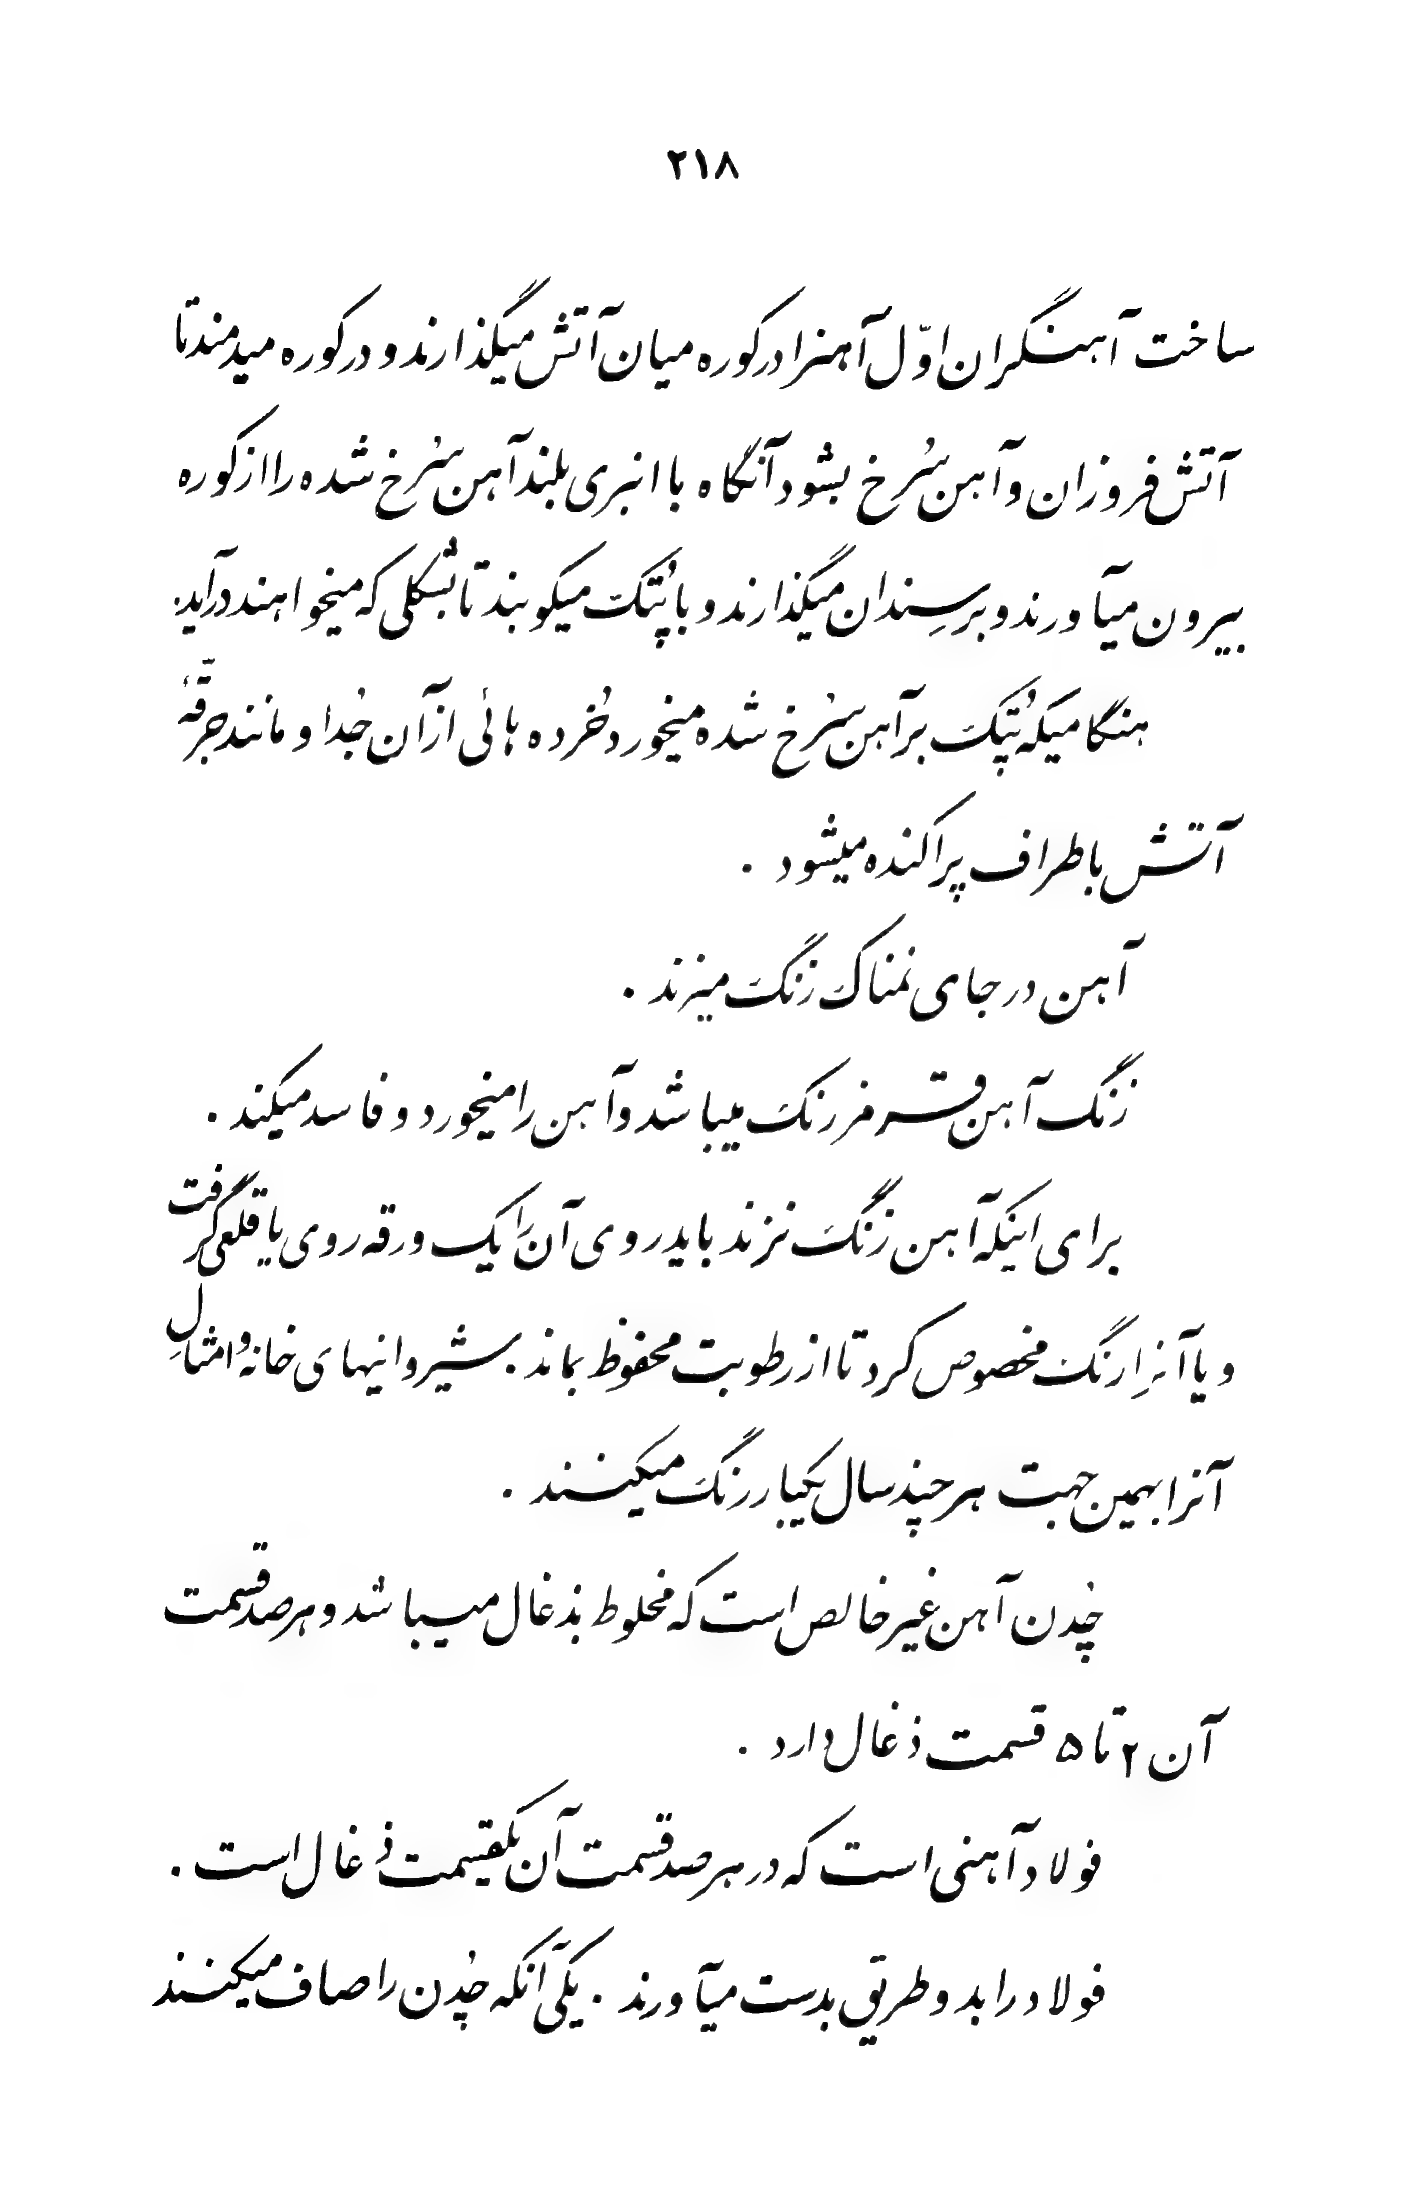 ۲۱۸
ساخت آهنگران اوّل آهنرا در کوره میان آتش میگذارند و در کوره میدمند تا
آتش فروزان و آهن سُرخ بشود آنگاه با انبری بلند آهن سُرخ شده را از کوره
بیرون میآورند و بر سِندان میگذارند و با پُتک میکوبند تا بشکلی که میخواهند درآید.
هنگامیکه پُتک بر آهن سُرخ شده میخورد خُرده هائی از آن جُدا و مانند جرقّهٔ
آتش باطراف پراکنده میشود .
آهن در جای نمناک زنگ میزند .
زنگ آهن قرمز رنگ میباشد و آهن را میخورد و فاسد میکند .
برای اینکه آهن زنگ نزند باید روی آن را یک ورقه روی یا قلعی گرفت
و یا آنرا رنگ مخصوص کرد تا از رطوبت محفوظ بماند . شیروانیهای خانه و امثالِ
آنرا بهمین جهت هر چند سال یکبار رنگ میکنند .
چُدن آهن غیر خالص است که مخلوط بذغال میباشد و هر صد قسمت
آن ۲ تا ۵ قسمت ذغال دارد .
فولاد آهنی است که در هر صد قسمت آن یکقسمت ذغال است .
فولاد را بدو طریق بدست میآورند . یکی آنکه چُدن را صاف میکنند